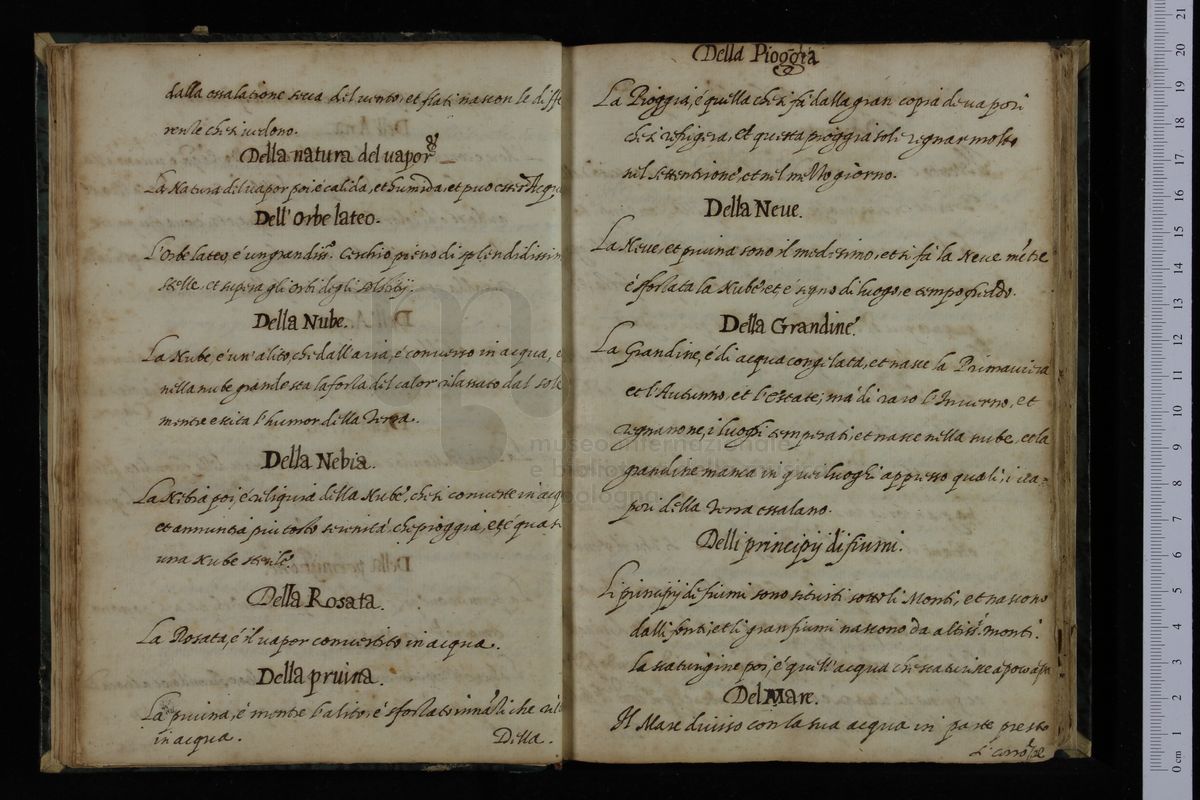 dalla essalatione secca del vento, et flati nascon le diffe
rentie che si vedono.
Della natura del vapor
La Natura del vapor poi é calida, et humida, et puo esser Acqu
Dell' Orbe lateo.
L'Orbe lateo, é un grandiss.º Cerchio pieno di splendidissim
stelle, et supera gli orbi degli solstitij.
Della Nube.
La Nube é un' alito, che dall' aria, é converso in acqua, e
nella nube grande sta la forza del calor rilassato dal sole
mentre excita l'humor della Terra.
Della Nebia.
La Nebia poi, é reliquia della Nube, che si converte in acq
et annuntia piu tosto serenità, che pioggia, et é quasi
una Nube sterile.
Della Rosata.
La Rosata, é il vapor convertito in acqua.
Della pruina.
La pruina, é mentre l'alito, é sforzato innāti che
in acqua.
Della.
Della Pioggia
La Pioggia, é quella che si fà dalla gran copia de vapori
che si refrigera, et questa pioggia sole regnar molto
nel settentrione, et nel mezzo giorno.
Della Neve.
La Neve, et pruina sono il medesimo, et si fà la Neve mētre
é sforzata la Nube, et é segno di luogo, e tempo freddo.
Della Grandine.
La Grandine, é di acqua congelata, et nasce la Primavera
et l'Autunno, et l'estate; má di raro l'Inverno, et
regnano ne, i luoghi temperati, et nasce nella nube, et la
grandine manca in quei luoghi appresso quali, i va-
pori della Terra essalano.
Delli principij di fiumi.
Li principij di fiumi sono situati sotto li Monti, et nascono
dalli fonti, et li gran fiumi nascono da altiss.i monti.
La scaturigine poi, é quell' acqua che scaturisce a poco a po
Del Mare.
Il Mare diviso con la sua acqua in parte presto